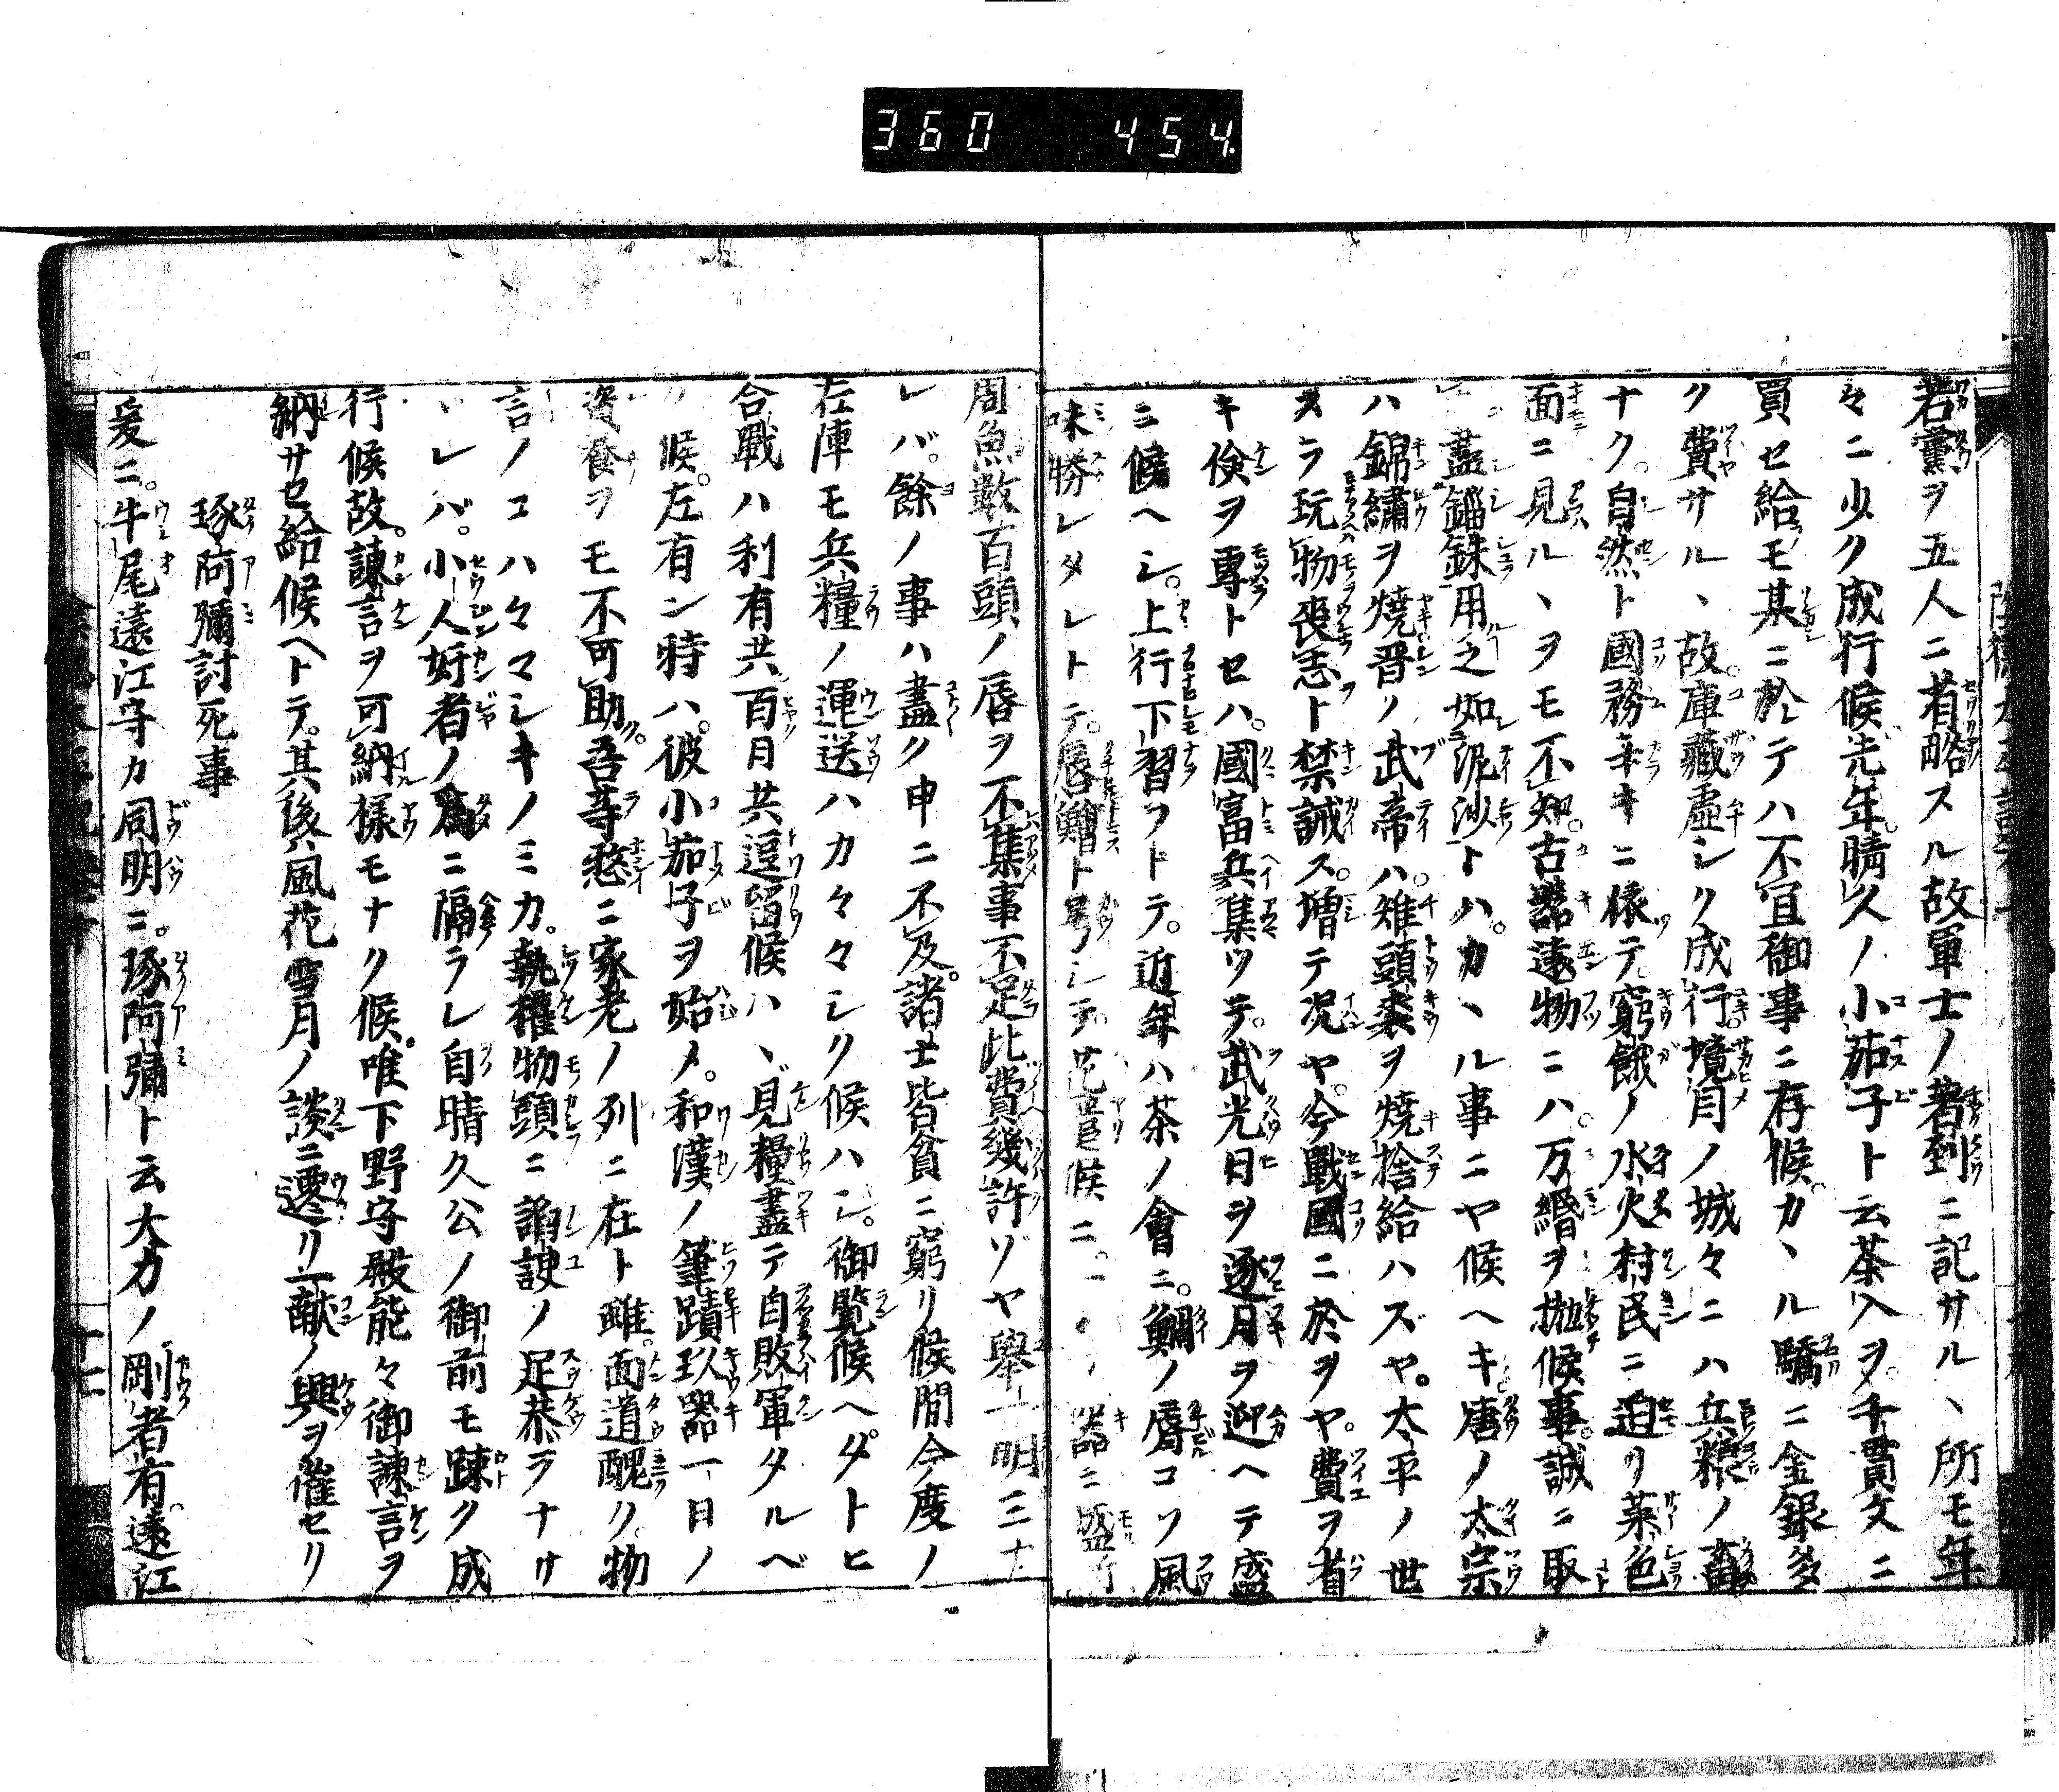 360 454
若黨ヲ五人ニ省略スル故軍士ノ著到ニ記サルヽ所モ年
々ニ少ク成行候先年晴久ノ小茄子ト云茶入ヲ千貫文ニ
買セ給モ某ニ於テハ不宜御事ニ存候カヽル驕ニ金銀多
ク費サルヽ故庫藏虚シク成行境目ノ城々ニハ兵粮ノ畜
ナク自然ト國務辛キニ依テ窮餓ノ水火村民ニ迫リ菜色
面ニ見ルヽヲモ不知古器遠物ニハ万緡ヲ抛候事誠ニ取
盡錙銖用之如泥沙トハカヽル事ニヤ候ヘキ唐ノ太宗
ハ錦繡ヲ燒晋ノ武帝ハ雉頭裘ヲ燒捨給ハズヤ太平ノ世
スラ玩物喪志ト禁誡ス増テ况ヤ今戰國ニ於ヲヤ費ヲ省
キ儉ヲ專トセハ國富兵集ツテ武光日ヲ逐月ヲ迎ヘテ盛
ニ候ヘシ上行下習フトテ近年ハ茶ノ會ニ鯛ノ脣コソ風
味勝レタレトテ脣鱠ト号シテ候ニ器ニ盛
周魚數百頭ノ唇ヲ不集事不足此費幾許ゾヤ舉一明三ナ
レバ餘ノ事ハ盡ク申ニ不及諸士皆貧ニ窮リ候間今度ノ
在陣モ兵糧ノ運送ハカ々々シク候ハシ御覽候ヘタトヒ
合戰ハ利有共百日共逗留候ハヽ見糧盡テ自敗軍タルベ
ク候左有ン時ハ彼小茄子ヲ始メ和漢ノ筆蹟玖器一日ノ
資養ヲモ不可助吾等憖ニ家老ノ列ニ在ト雖面道醜ク物
言ノコハ々マシキノミカ執權物頭ニ諂諛ノ足恭ラナサ
ヽレバ小人奸者ノ爲ニ隔ラレ自晴久公ノ御前モ踈ク成
行候故諫言ヲ可納樣モナク候唯下野守殿能々御諫言ヲ
納サセ給候ヘトテ其後風花雪月ノ談ニ遷リ一獻ノ興ヲ催セリ
琢阿彌討死事
爰ニ牛尾遠江守カ同明ニ琢阿彌ト云大力ノ剛者有遠江